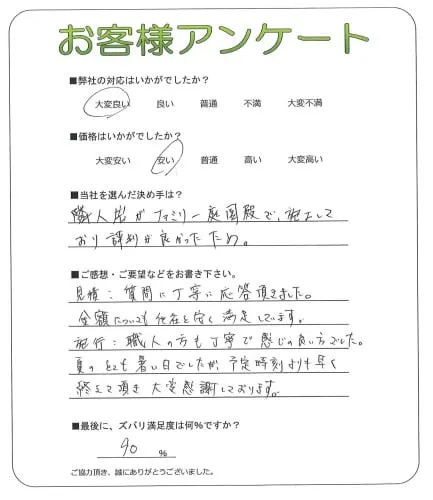 お客様アンケート
■弊社の対応はいかがでしたか?
大変良い 良い 普通 不満 大変不満
■価格はいかがでしたか?
大変安い 安い 普通 高い 大変高い
■当社を選んだ決め手は?
職人 がファミリー庭園殿で、施工して
おり評判が良かったため。
■ご感想・ご要望などをお書き下さい。
見積:質問に丁寧に応答頂きました。
金額についても他社と安く満足しています。
施行:職人の方も丁寧で感じの良い方でした。
夏のとても暑い日でしたが、予定時刻よりも早く
終えて頂き大変感謝しております。
■最後に、ズバリ満足度は何%ですか?
90 %
ご協力頂き、誠にありがとうございました。